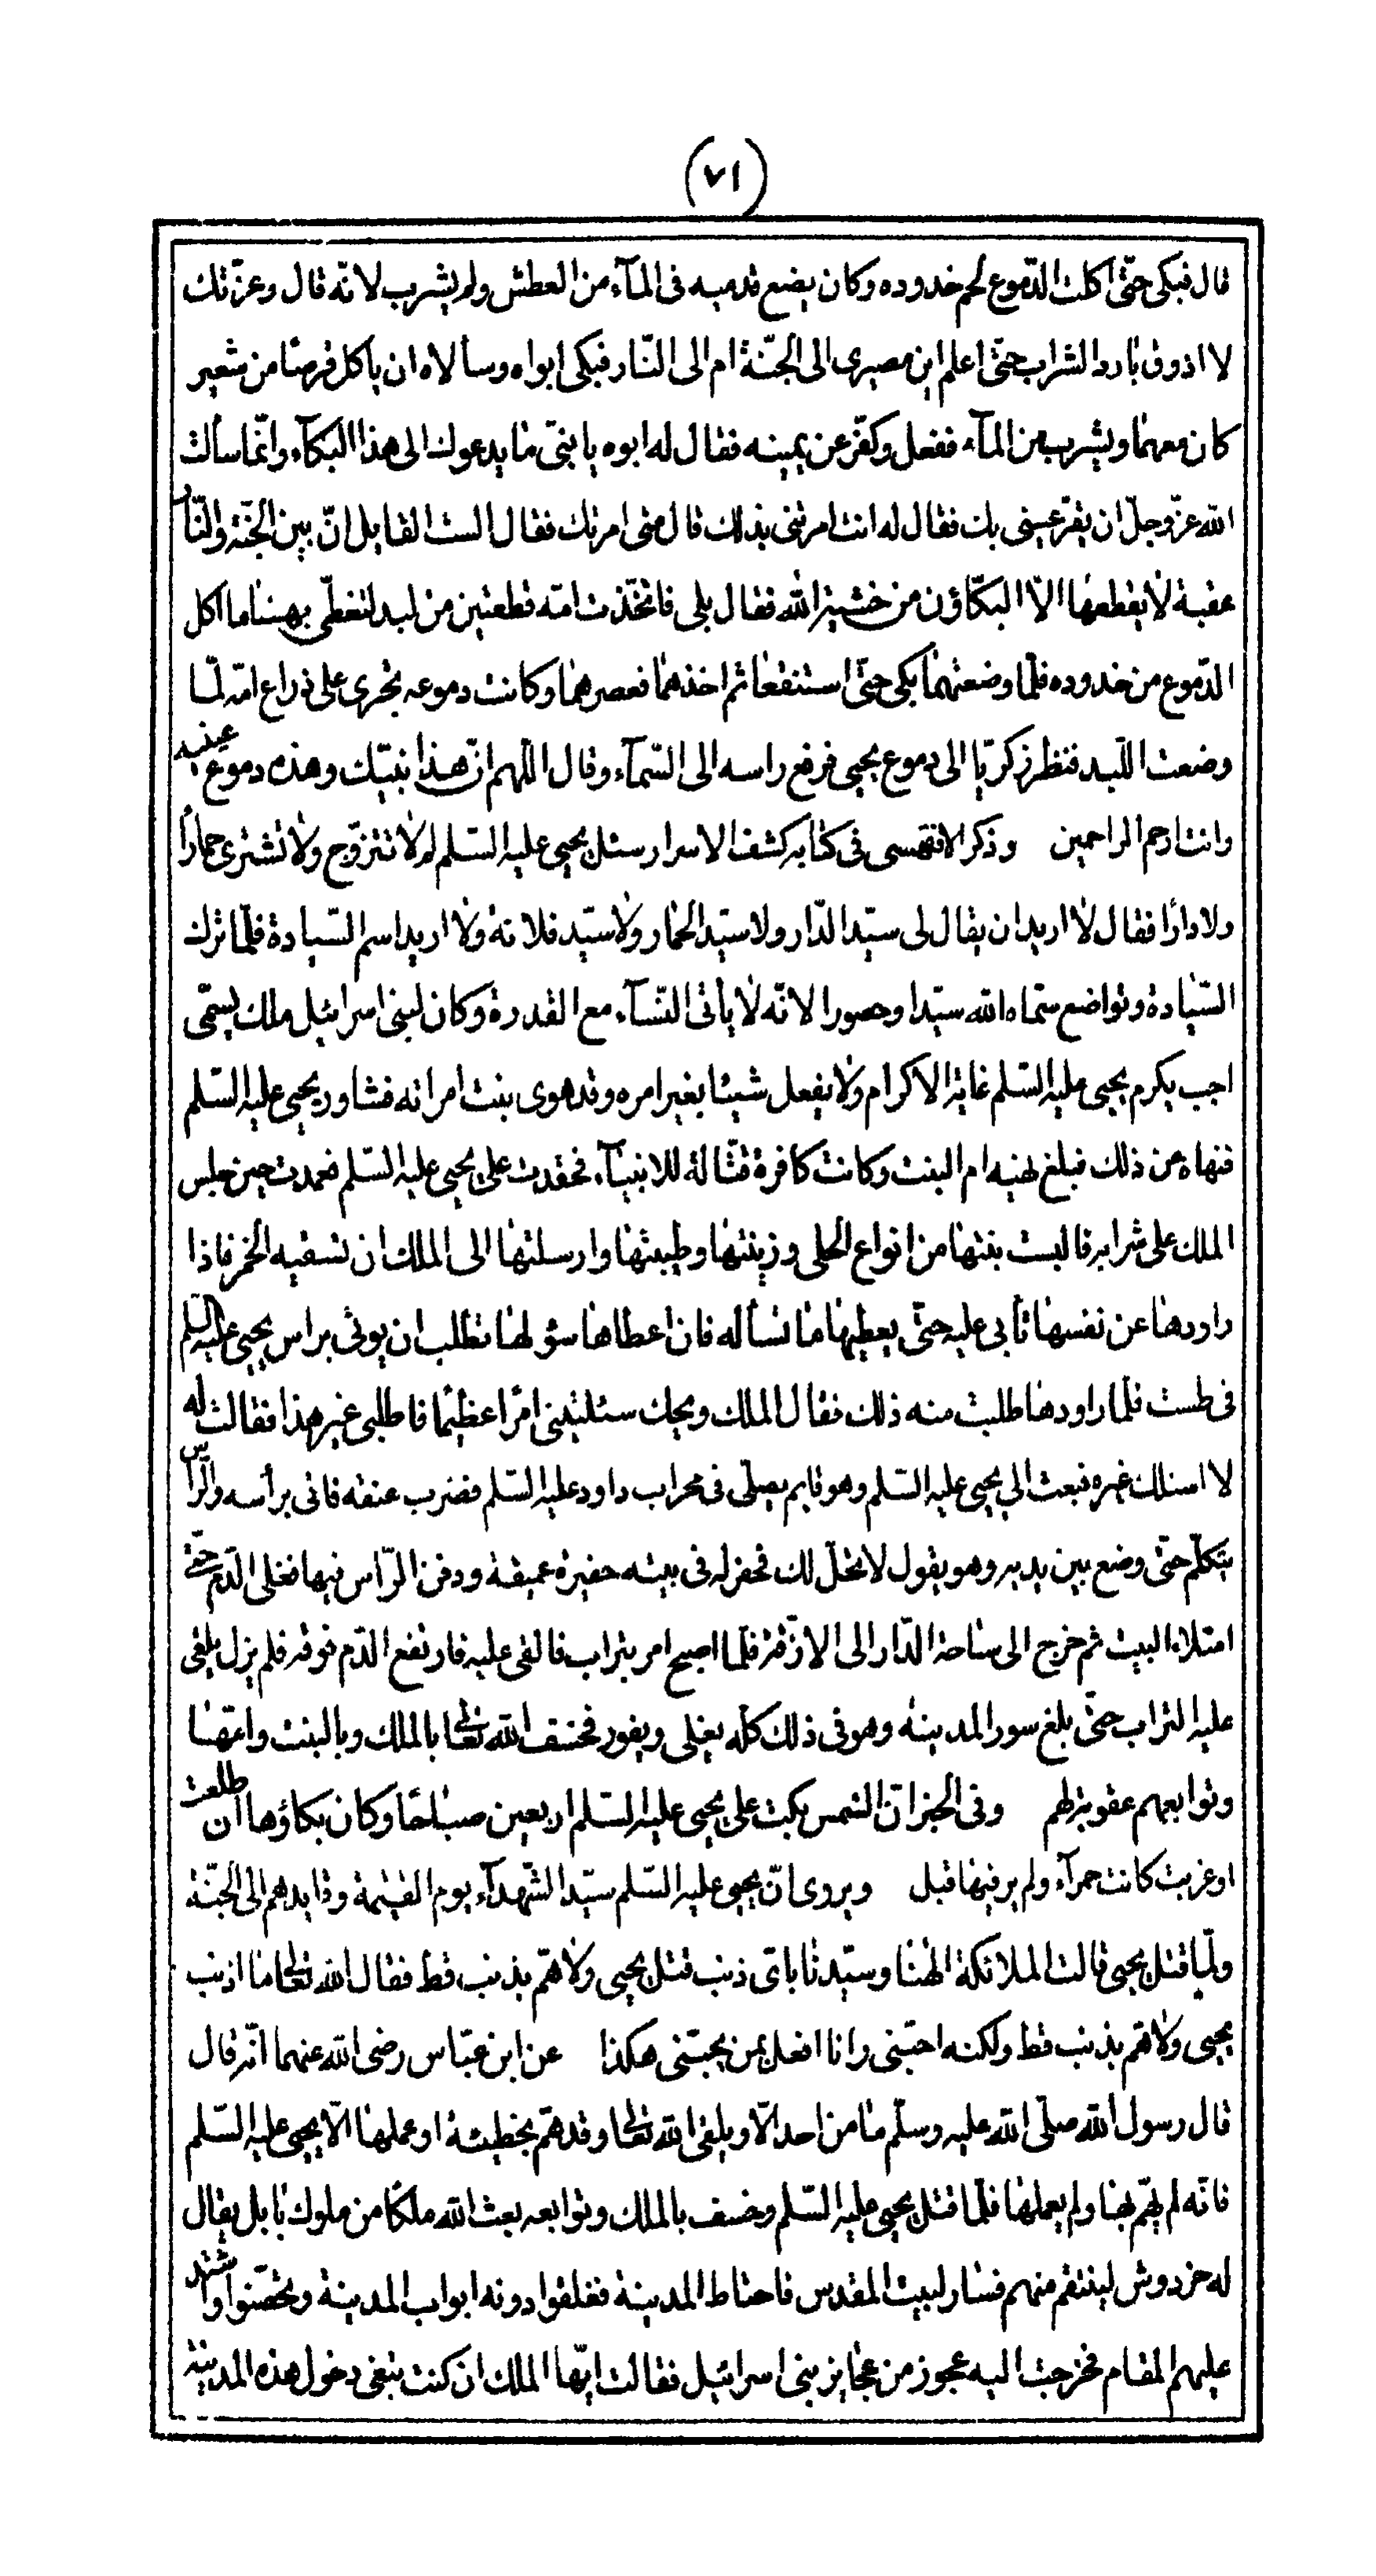 (٧١)
قال فبكى حتّى اكلت الدّموع لحم خدوده وكان يضع قدميه فى المآء من العطش ولم يشرب لانّه قال وعزّتك
لا اذوق بارد الشراب حتّى اعلم اين مصيرى الى الجنّة ام الى النّار فبكى ابواه وسألاه ان ياكل قرصًا من شعير
كان معهما ويشرب من المآء ففعل وكفّر عن يمينه فقال له ابوه يا بنىّ ما يدعوك الى هذا البكآء وانّما سألت
الله عزّ وجلّ ان يقرّ عينى بك فقال له انت امرتنى بذلك قال متى امرتك فقال الست القايل انّ بين الجنّة والنّار
عقبة لا يقطعها الّا البكّاؤن من خشية الله فقال بلى فاتّخذت امّه قطعتين من لبد لتغطّى بهما ما اكل
الدّموع من خدوده فلمّا وضعتهما بكى حتّى استنقعا ثم اخذهما فعصرهما وكانت دموعه تجرى على ذراع امّه لمّا
وضعت اللّبد فنظر زكريّا الى دموع يحيى فرفع راسه الى السّمآء وقال اللّهم انّ هذا بنيّك وهذه دموع عينيه
وانت ارحم الراحمين وذكر الاقفهسى فى كتابه كشف الاسرار سئل يحيى عليه السّلم لم لا تتزوّج ولا تشترى حمارًا
ولا دارًا فقال لا اريد ان يقال لى سيّد الدّار ولا سيّد الحمار ولا سيّد فلانة ولا اريد اسم السّيادة فلمّا ترك
السّيادة وتواضع سمّاه الله سيّدا وحصورا لانّه لا يأتى النّسآء مع القدرة وكان لبنى اسرائيل ملك يسمّى
اجب يكرم يحيى عليه السّلم غاية الاكرام ولا يفعل شيئا بغير امره وقد هوى بنت امراته فشاور يحيى عليه السّلم
فنهاه عن ذلك فبلغ نهيه ام البنت وكانت كافرة قتّالة للانبيآء فحقدت على يحيى عليه السّلم فعمدت حين جلس
الملك على شرابه فالبست بنتها من انواع الحلى وزينتها وطيبتها وارسلتها الى الملك ان تسقيه الخمر فاذا
راودها عن نفسها تأبى عليه حتّى يعطيها ما تسأله فان اعطاها سؤلها تطلب ان يوتى براس يحيى عليه السّلم
فى طست فلمّا راودها طلبت منه ذلك فقال الملك ويحك سئلتينى امرًا عظيمًا فاطلبى غير هذا فقالت له
لا اسئلك غيره فبعث الى يحيى عليه السّلم وهو قايم يصلّى فى محراب داود عليه السّلم فضرب عنقه فاتى برأسه والرّاس
يتكلّم حتّى وضع بين يديه وهو يقول لا تحلّ لك فحفر له فى بيته حفيرة عميقة ودفن الرّاس فيها فغلى الدّم حتّى
امتلاء البيت ثم خرج الى ساحة الدّار الى الازقّة فلمّا اصبح امر بتراب فالقى عليه فارتفع الدّم فوقه فلم يزل يلقى
عليه التراب حتّى بلغ سور المدينة وهو فى ذلك كلّه يغلى ويفور فخسف الله تعالى بالملك وبالبنت وامّها
وتوابعهم عقوبة لهم وفى الخبر انّ الشمس بكت على يحيى عليه السّلم اربعين صباحًا وكان بكاؤها ان طلعت
او غربت كانت حمرآء ولم ير فيها قبل ويروى انّ يحيى عليه السّلم سيّد الشّهدآء يوم القيمة وقايدهم الى الجنّة
ولمّا قتل يحيى قالت الملائكة الهنا وسيّدنا باىّ ذنب قتل يحيى ولا همّ بذنب قط فقال الله تعالى ما اذنب
يحيى ولا هّم بذنب قط ولكنه احبّنى وانا افعل بمن يحبّنى هكذا عن ابن عبّاس رضى الله عنهما انّه قال
قال رسول الله صلّى الله عليه وسلّم ما من احد الّا ويلقى الله تعالى وقد همّ بخطيئة او عملها الّا يحيى عليه السّلم
فانّه لم يهّم بها ولم يعملها فلمّا قتل يحيى عليه السّلم وخسف بالملك وتوابعه بعث الله ملكًا من ملوك بابل يقال
له خردوش لينتقم منهم فسار لبيت المقدس فاحتاط المدينة فغلقوا دونه ابواب المدينة وتحصّنوا واشتد
عليهم المقام فخرجت اليه عجوز من عجايز بنى اسرائيل فقالت ايّها الملك ان كنت تبغى دخول هذه المدينة